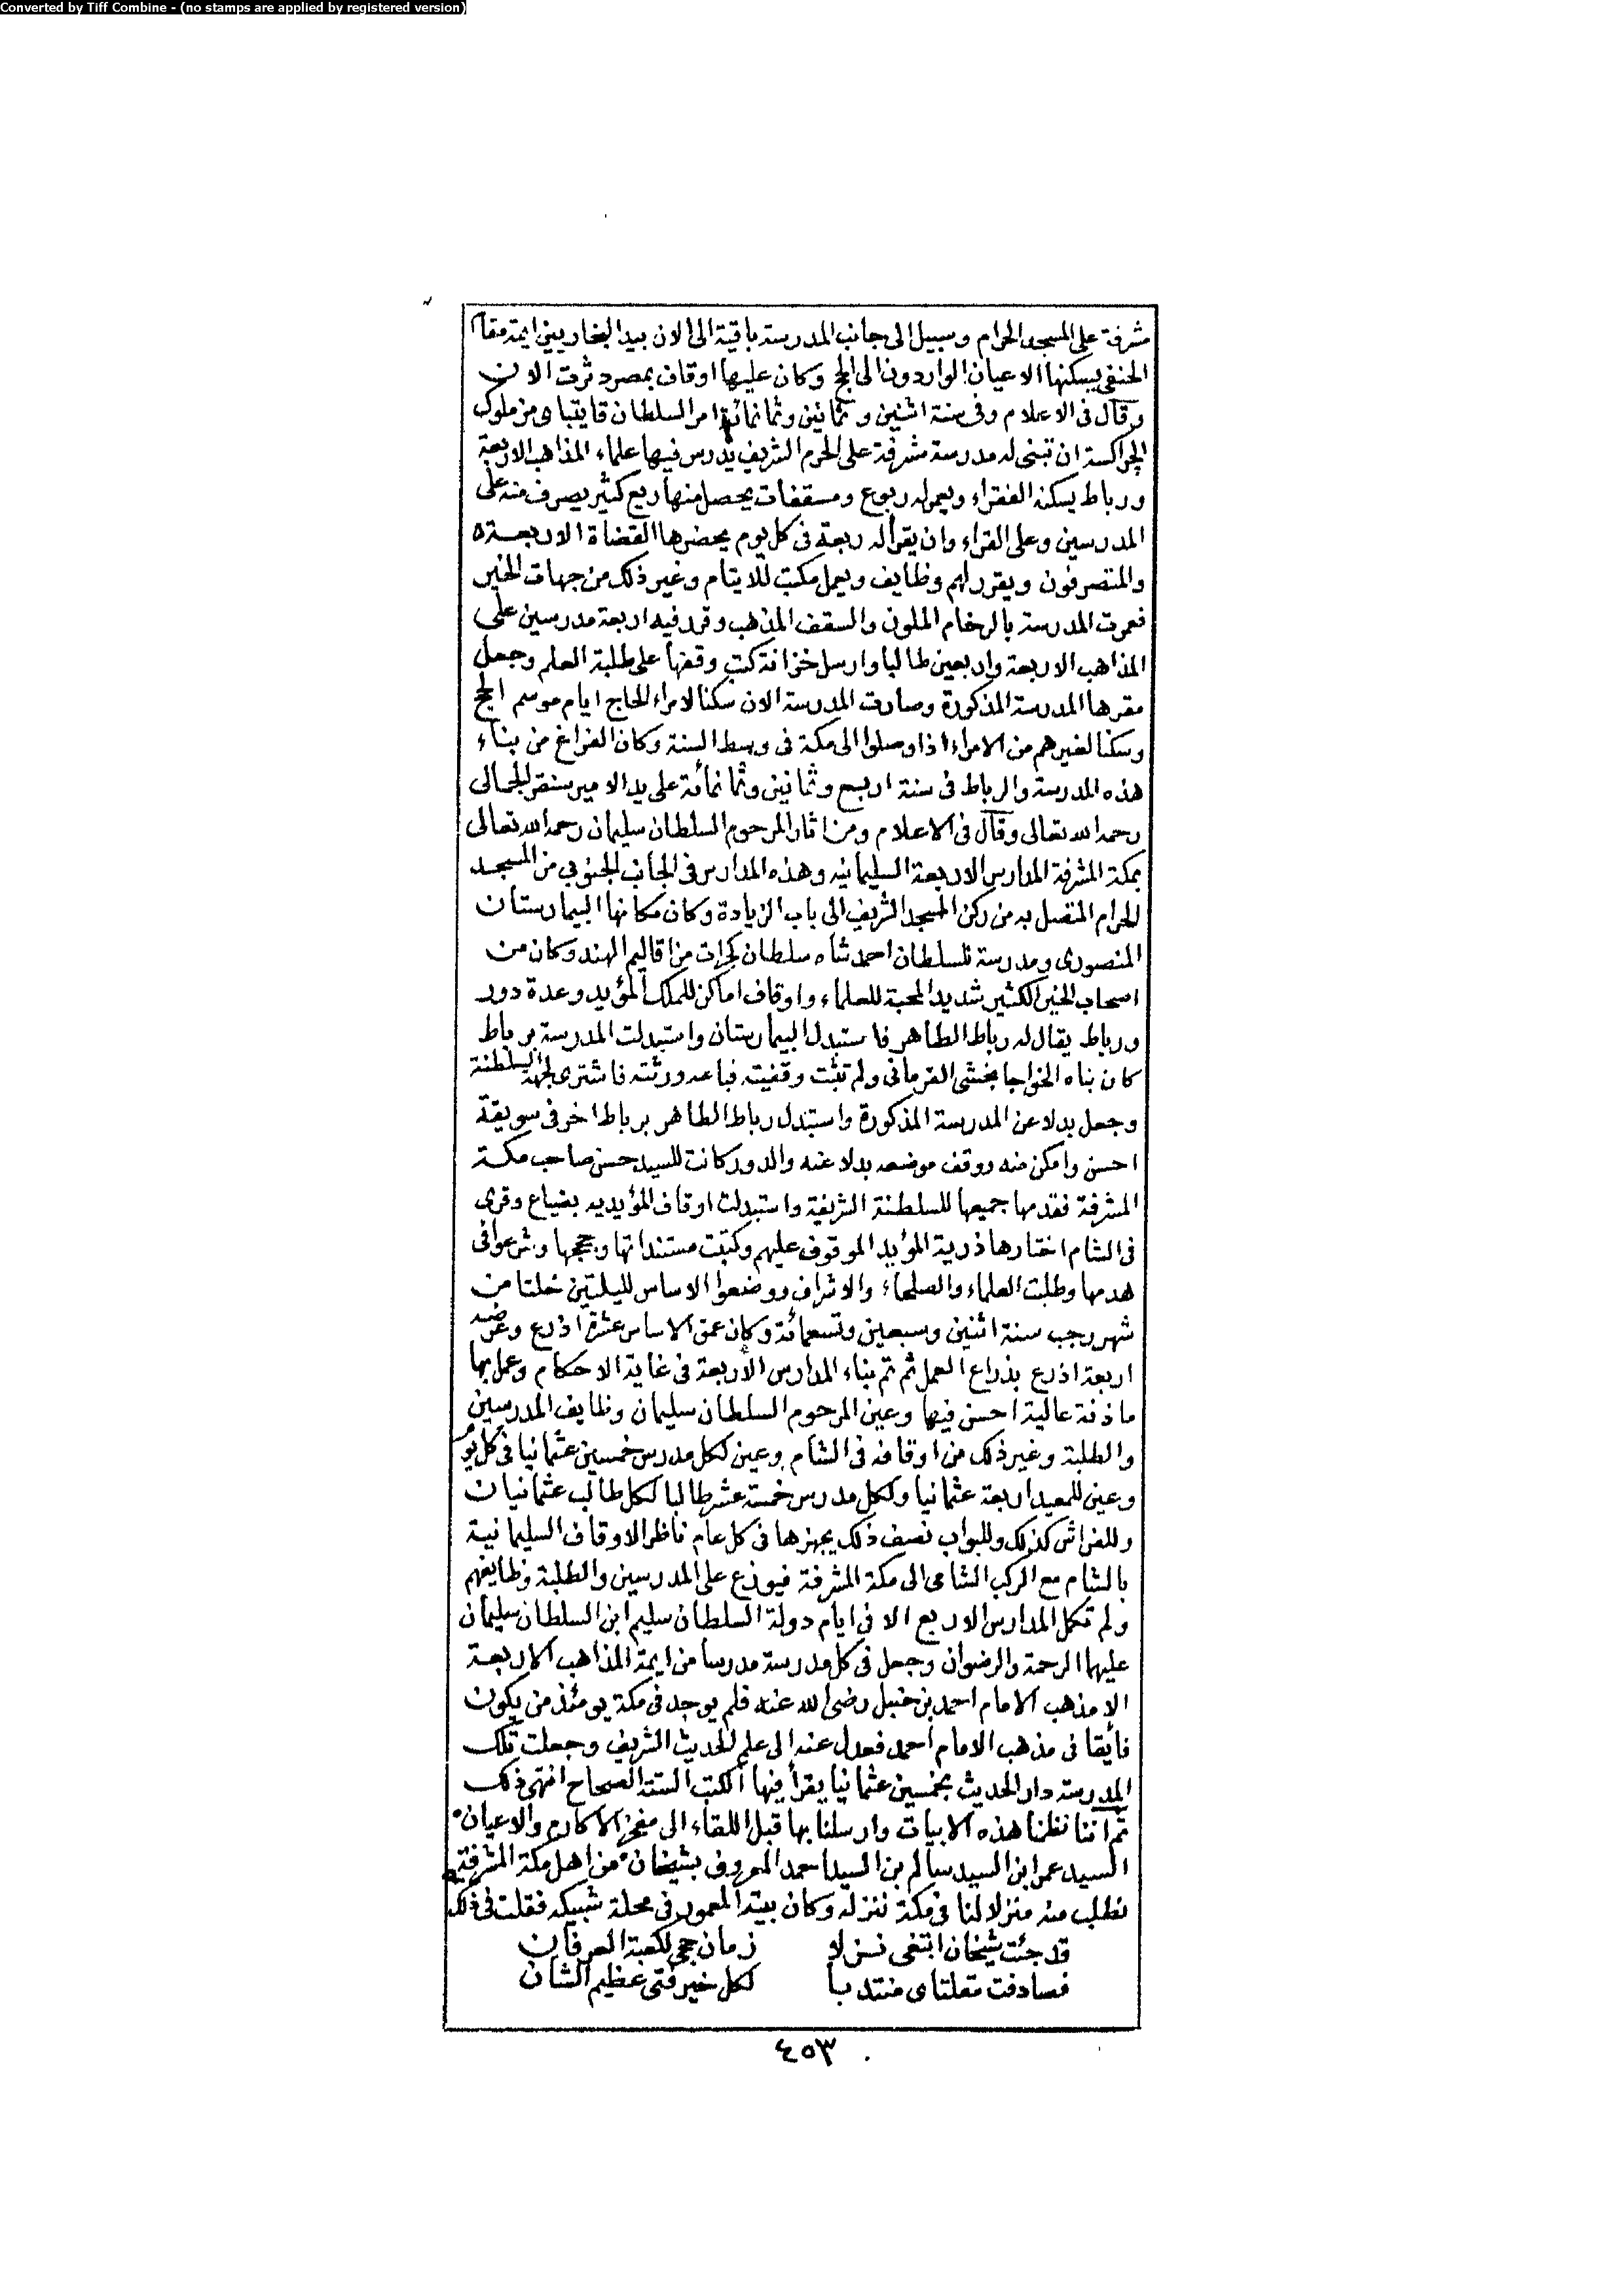 Converted by Tiff Combine - (no stamps are applied by registered version)
مشرفة على المسجد الحرام وسبيل الى جانب المدرسة باقية الى الان بيد البخاريين ايمة مقام
الحنفي يسكنها الاعيان الواردون الى الحج وكان عليها اوقاف بمصر دثرت الان
وقال في الاعلام وفي سنة اثنين وثمانين وثمانمائة امر السلطان قايتباى من ملوك
الجراكسة ان تبنى له مدرسة مشرفة على الحرم الشريف يدرس فيها علماء المذاهب الاربعة
ورباط يسكنه الفقراء ويعمل له ربوع ومسقفات يحصل منها ريع كثير يصرف منه على
المدرسين وعلى القراء وان يقرأ له ربعة في كل يوم يحضرها القضاة الاربعة
والمتصرفون ويقرر لهم وظايف ويعمل مكتب للايتام وغير ذلك من جهات الخير
فعمرت المدرسة بالرخام الملون والسقف المذهب وقرر فيه اربعة مدرسين على
المذاهب الاربعة واربعين طالبا وارسل خزانة كتب وقفها على طلبة العلم وجعل
مقرها المدرسة المذكورة وصارت المدرسة الان سكنا لامراء الحاج ايام موسم الحج
وسكنا لغيرهم من الامراء اذا وصلوا الى مكة في وسط السنة وكان الفراغ من بناء
هذه المدرسة والرباط في سنة اربع وثمانين وثمانمائة على يد الامير سنقر الجمالى
رحمه الله تعالى وقال في الاعلام ومن اثار المرحوم السلطان سليمان رحمه الله تعالى
بمكة المشرفة المدارس الاربعة السليمانيه وهذه المدارس في الجانب الجنوبي من المسجد
الحرام المتصل به من ركن المسجد الشريف الى باب الزيادة وكان مكانها البيمارستان
المنصورى ومدرسة للسلطان احمد شاه سلطان كجرات من اقاليم الهند وكان من
اصحاب الخير الكثير شديد المحبة للعلماء واوقاف اماكن للملك المؤيد وعدة دور
ورباط يقال له رباط الطاهر فاستبدل البيمارستان واستبدلت المدرسة برباط
كان بناه الخواجا بخشى القرمانى ولم تثبت وقفيته فباعه ورثته فاشترى لجهة السلطنة
وجعل بدلا عن المدرسة المذكورة واستبدل رباط الطاهر برباط اخر في سويقة
احسن وامكن منه ووقف موضعه بدلا عنه والدور كانت للسيد حسن صاحب مكة
المشرفة فقدمها جميعها للسلطنة الشريفة واستبدلت اوقاف المؤيديه بضياع وقرى
في الشام اختارها ذرية المؤيد الموقوف عليهم وكتبت مستنداتها وحججها وشرعوا في
هدمها وطلبت العلماء والصلحاء والاشراف ووضعوا الاساس لليلتين خلتا من
شهر رجب سنة اثنين وسبعين وتسعمائة وكان عمق الاساس عشرة اذرع وعرضه
اربعة اذرع بذراع العمل ثم تم بناء المدارس الأربعة في غاية الاحكام وعمل بها
ماذنة عالية احسن فيها وعين المرحوم السلطان سليمان وظايف المدرسين
والطلبة وغير ذلك من اوقافه في الشام وعين لكل مدرس خمسين عثمانيا في كل يوم
وعين للمعيد اربعة عثمانيا ولكل مدرس خمسة عشر طالبا لكل طالب عثمانيان
وللفراش كذلك وللبواب نصف ذلك يجهزها في كل عام ناظر الاوقاف السليمانية
بالشام مع الركب الشامى الى مكة المشرفة فيوزع على المدرسين والطلبة وظايفهم
ولم تكمل المدارس الاربع الا في ايام دولة السلطان سليم ابن السلطان سليمان
عليهما الرحمة والرضوان وجعل في كل مدرسة مدرسا من ايمة المذاهب الاربعة
الا مذهب الامام احمد بن حنبل رضى الله عنه فلم يوجد في مكة يومئذ من يكون
فائقا في مذهب الامام احمد فعدل عنه الى علم الحديث الشريف وجعلت تلك
المدرسة دار الحديث بخمسين عثمانيا يقرأ فيها الكتب الستة الصحاح انتهى ذلك
ثم اننا نظمنا هذه الابيات وارسلنا بها قبل اللقاء الى مفخر الاكارم والاعيان
السيد عمر ابن السيد سالم بن السيد احمد المعروف بشيخان من اهل مكة المشرفة
نطلب منه منزلا لنا في مكة ننزله وكان بيته المعمور في محلة شبيكه فقلت في ذلك
قد جئت شيخان ابتغى نزلا زمان حجى لكعبة العرفان
فصادفت مقلتاى منتدبا لكل خير فتى عظيم الشان
٤٥٣